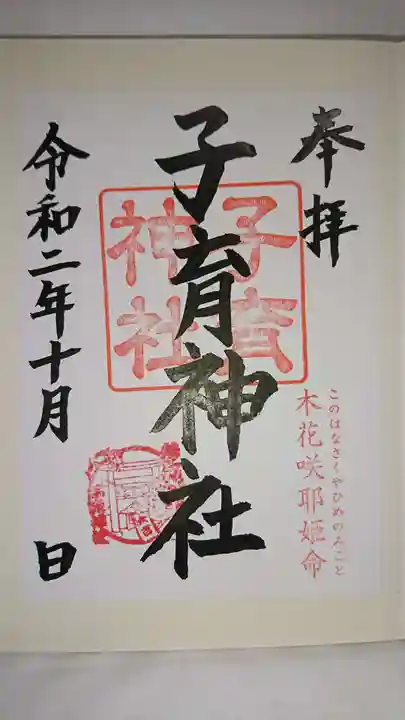 奉拝
このはなさくやひめのみこと
木花咲耶姫命
子育神社
子育
神社
令和二年十月　日